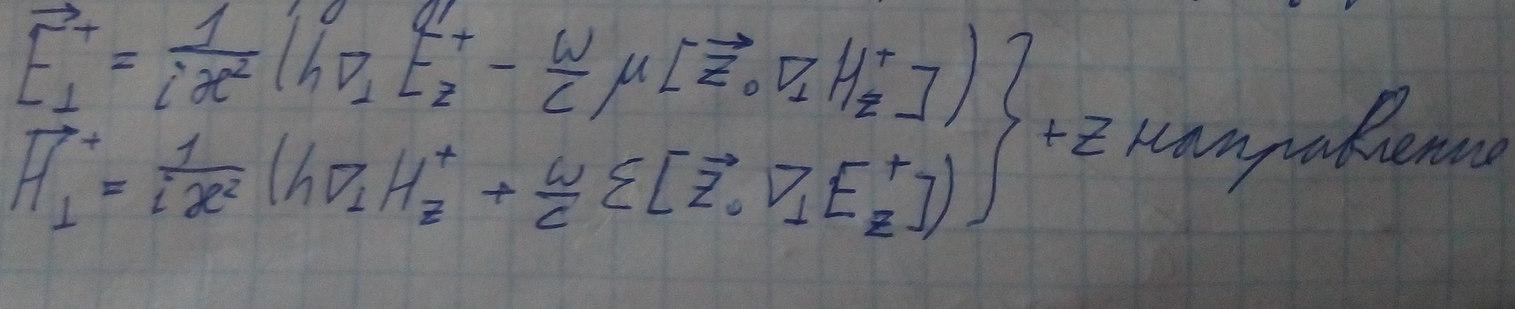 E⃗⊥⁺ = 1/(iæ²) (h∇⊥E_z⁺ − ω/c μ[z⃗₀ ∇⊥H_z⁺])
H⃗⊥⁺ = 1/(iæ²) (h∇⊥H_z⁺ + ω/c ε[z⃗₀ ∇⊥E_z⁺]) } +z направление